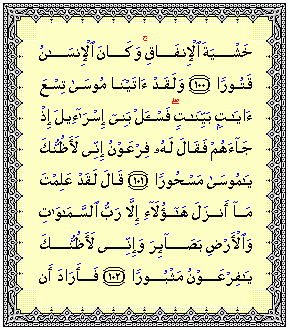 خَشْيَةَ ٱلْإِنفَاقِ ۚ وَكَانَ ٱلْإِنسَـٰنُ
قَتُورًا ﴿١٠٠﴾ وَلَقَدْ ءَاتَيْنَا مُوسَىٰ تِسْعَ
ءَايَـٰتٍۭ بَيِّنَـٰتٍ ۖ فَسْـَٔلْ بَنِىٓ إِسْرَٰٓءِيلَ إِذْ
جَآءَهُمْ فَقَالَ لَهُۥ فِرْعَوْنُ إِنِّى لَأَظُنُّكَ
يَـٰمُوسَىٰ مَسْحُورًا ﴿١٠١﴾ قَالَ لَقَدْ عَلِمْتَ
مَآ أَنزَلَ هَـٰٓؤُلَآءِ إِلَّا رَبُّ ٱلسَّمَـٰوَٰتِ
وَٱلْأَرْضِ بَصَآئِرَ وَإِنِّى لَأَظُنُّكَ
يَـٰفِرْعَوْنُ مَثْبُورًا ﴿١٠٢﴾ فَأَرَادَ أَن